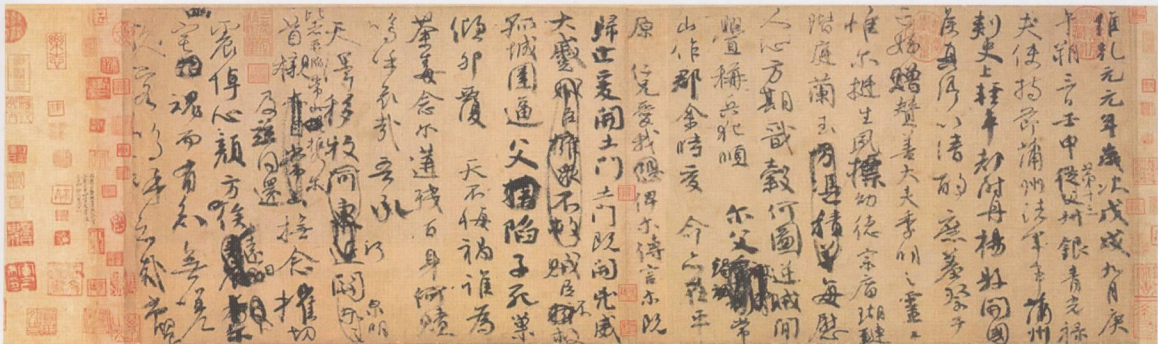 維乾元元年歲次戊戌九月庚
午朔三日壬申第十三叔銀青光祿
夫使持節蒲州諸軍事蒲州
刺史上輕車都尉丹楊縣開國
侯真卿以清酌庶羞祭于
亡姪贈贊善大夫季明之靈曰
惟爾挺生夙標幼德宗廟瑚璉
階庭蘭玉方憑積善每慰
人心方期戩穀何圖逆賊間
釁稱兵犯順爾父竭誠常
山作郡余時受命亦在平
原仁兄愛我俾爾傳言爾既
歸止爰開土門土門既開凶威
大蹙賊臣擁眾不救賊臣不救
孤城圍逼父陷子死巢
傾卵覆天不悔禍誰為
荼毒念爾遘殘百身何贖
嗚呼哀哉吾承
天澤移牧河關泉明
比者再陷常山攜爾
首櫬及茲同還撫念摧切
震悼心顏方俟遠日
爾幽宅魂而有知無嗟
久客嗚呼哀哉尚饗